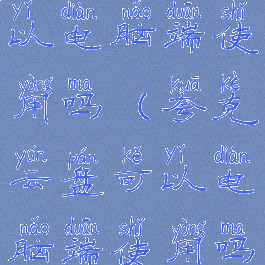 yǐ diàn nǎo duān shǐ
以电脑端使
yòng ma kuā kè
用吗（夸克
yún pán kě yǐ diàn
云盘可以电
nǎo duān shǐ yòng ma
脑端使用吗